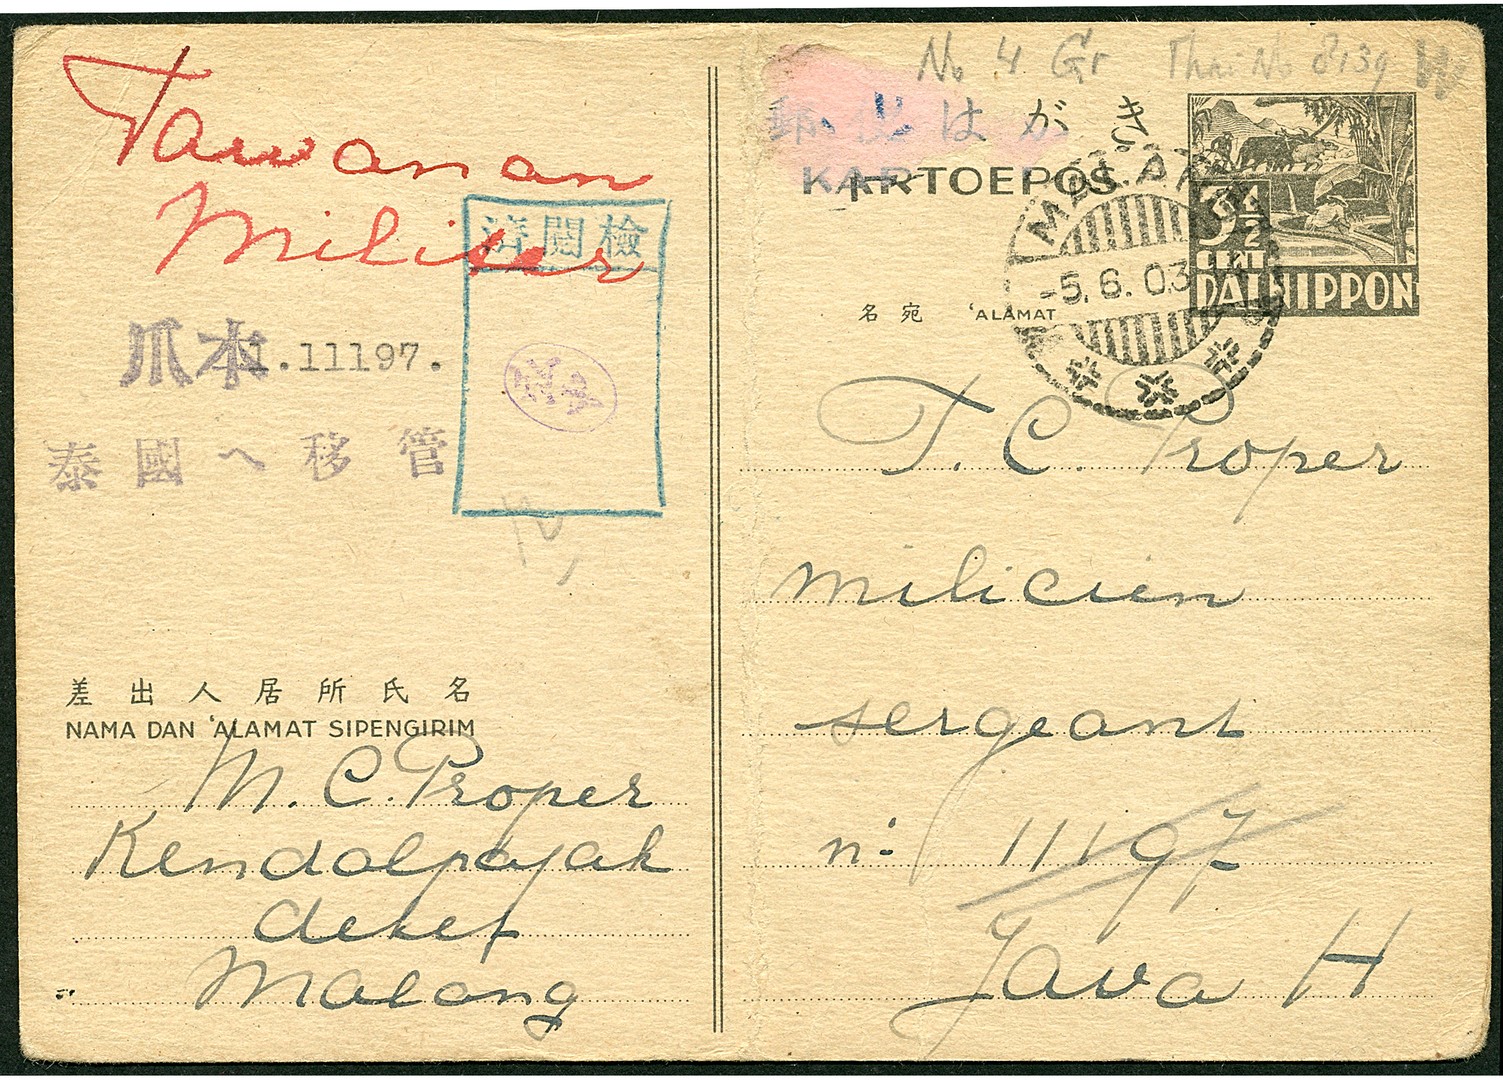 Tawanan
Militer
検閲済
爪本
1.11197.
泰國へ移管
差出人居所氏名
NAMA DAN 'ALAMAT SIPENGIRIM
M. C. Proper
Kendalpajak
deket
Malang
No 4 Gr Thai No 8139 W
郵便はがき
KARTOEPOS
MALANG
-5.6.03
3½
CENT
DAI NIPPON
名宛 'ALAMAT
T. C. Proper
milicien
sergeant
n: 11197
Java H